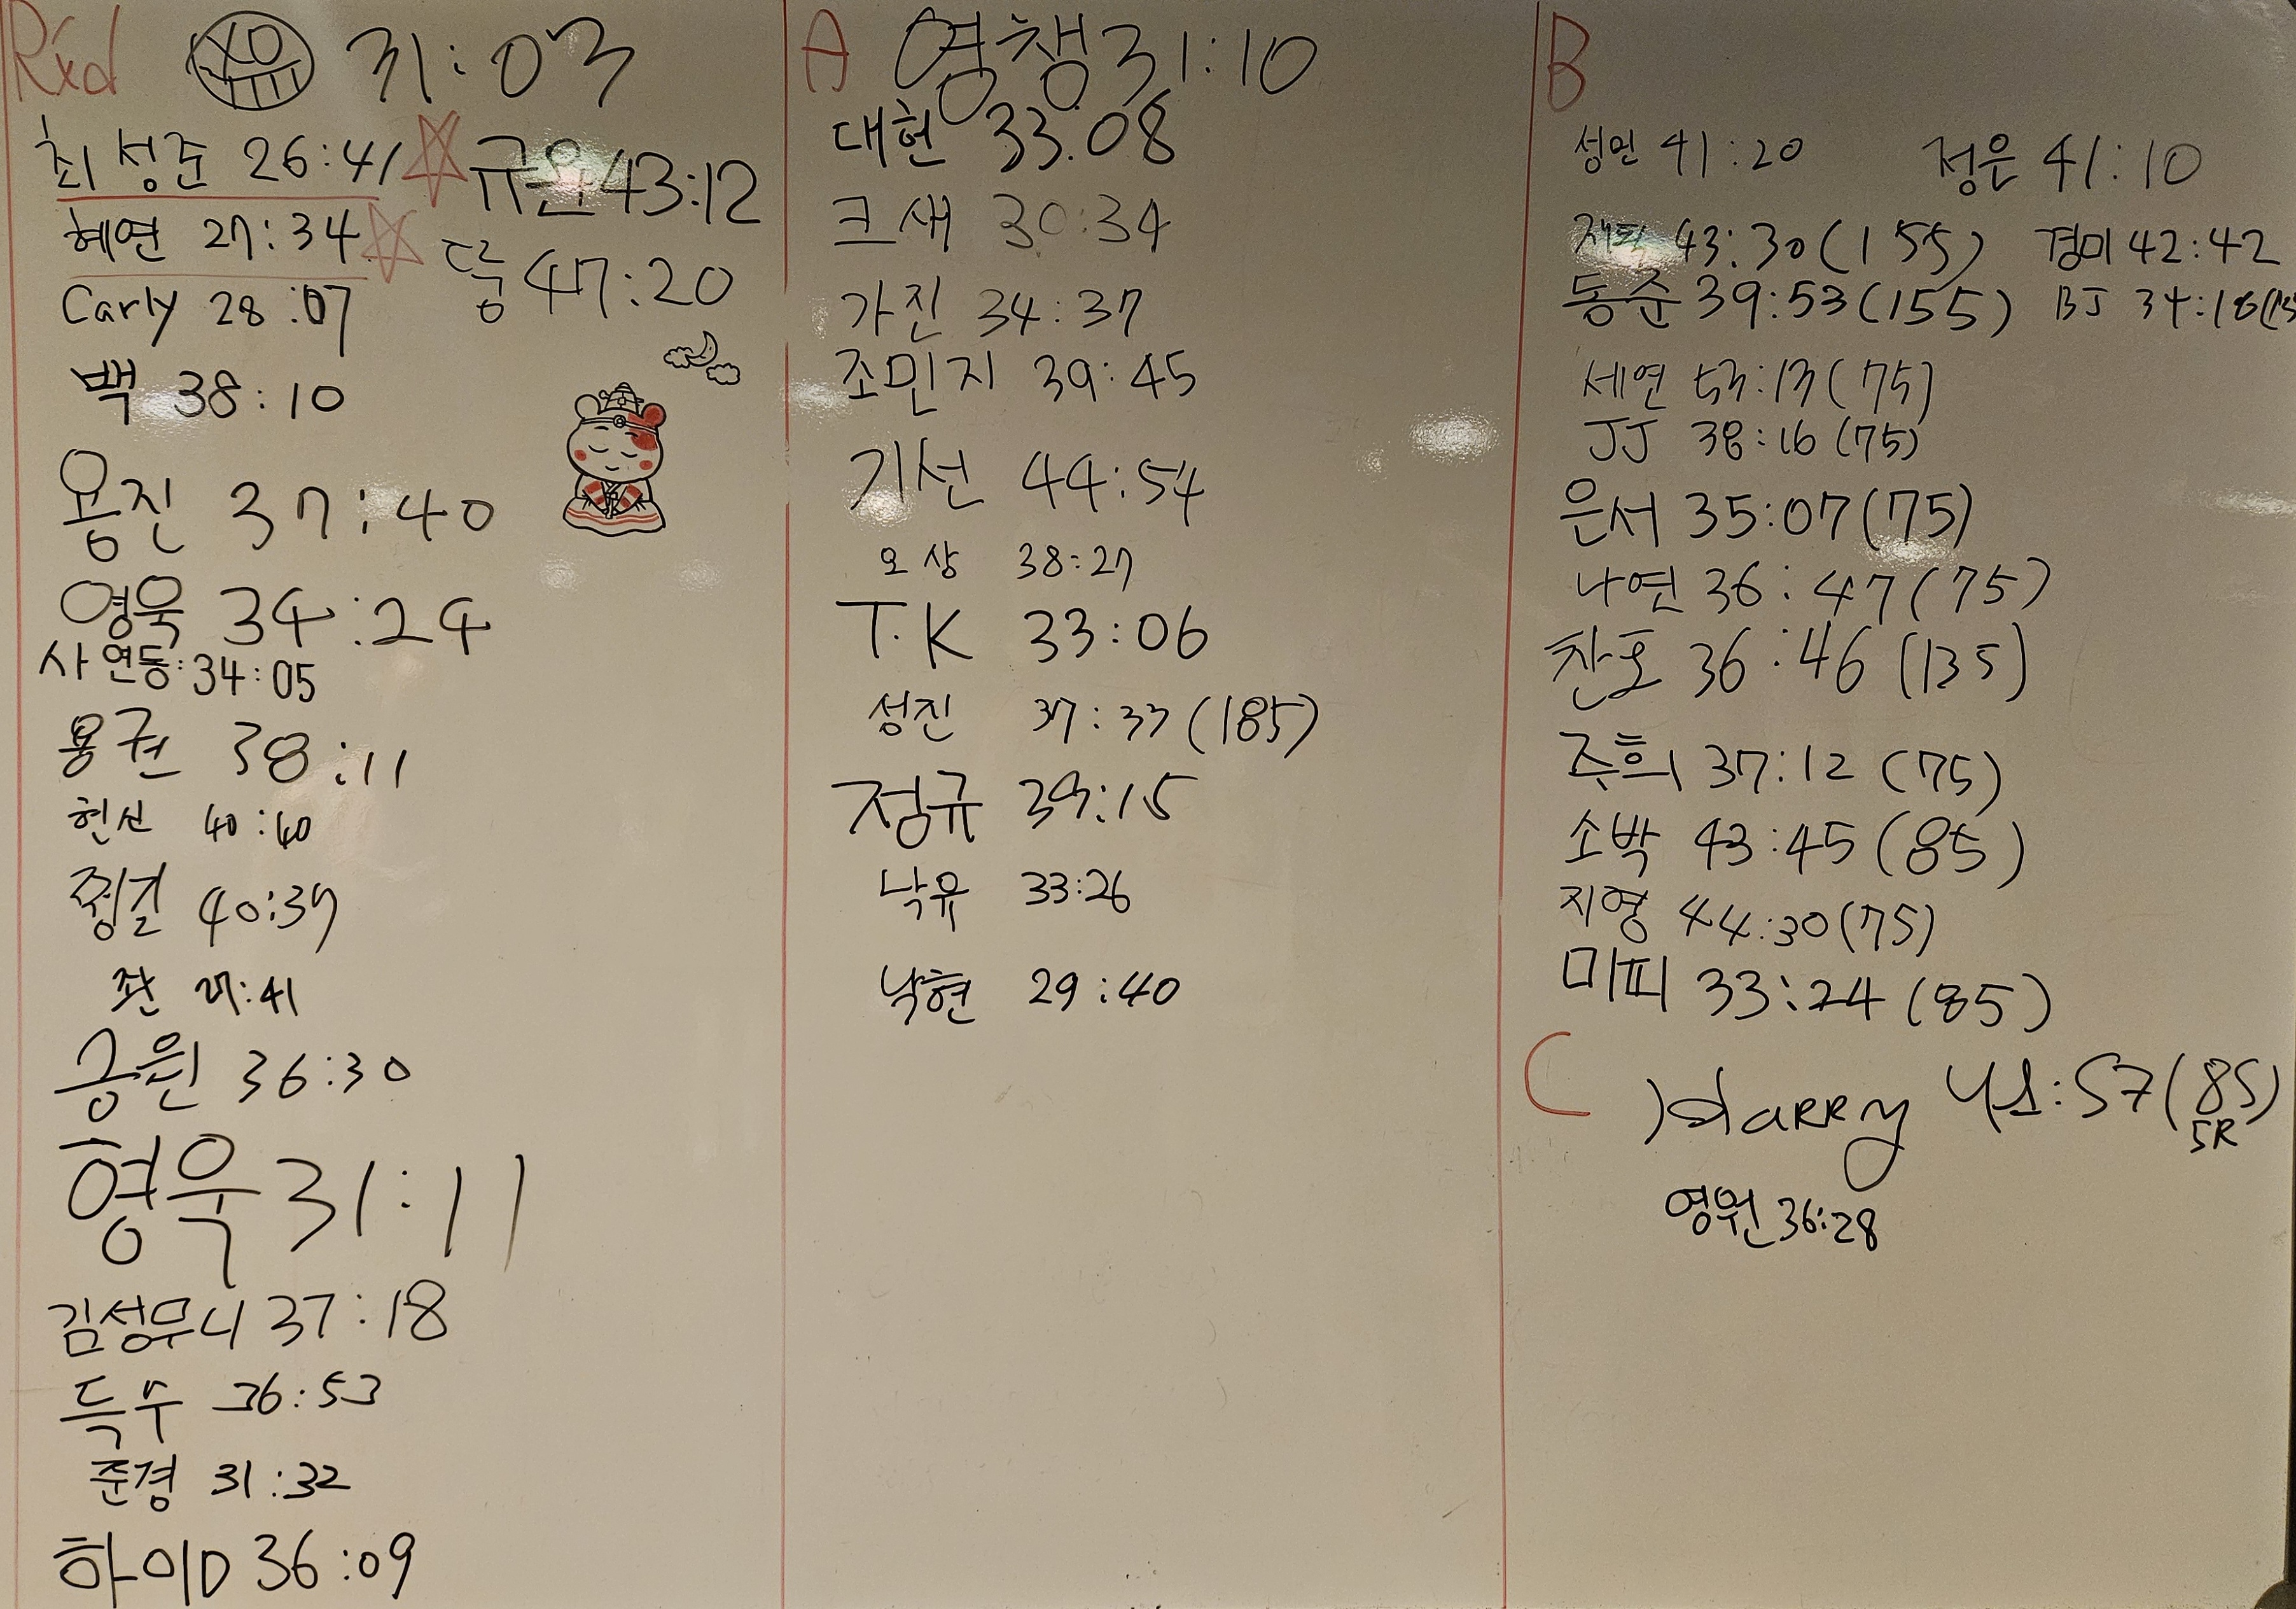 Rxd
31:03
최성준 26:41
혜연 27:34
Carly 28:07
백 38:10
용진 37:40
영욱 34:24
사연동:34:05
용권 38:11
현선 40:40
찡긋 40:39
좌 27:41
승원 36:30
형욱 31:11
김성무니 37:18
득수 36:53
준경 31:32
하이D 36:09
규완 43:12
47:20
A
영챙 31:10
대헌 33.08
크새 30:34
가진 34:37
조민지 39:45
기선 44:54
오상 38:27
T.K 33:06
성진 37:33 (185)
정규 39:15
낙유 33:26
낙현 29:40
B
성민 41:20
43:30 (155)
동준 39:53 (155)
세연 53:13 (75)
JJ 38:16 (75)
은서 35:07 (75)
나연 36:47 (75)
찬호 36:46 (135)
주희 37:12 (75)
소박 43:45 (85)
지영 44:30 (75)
미피 33:24 (85)
정은 41:10
경미 42:42
BJ 34:18
C
Harry :57 (85)
5R
영원 36:28